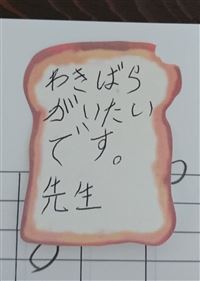 わきばら
がいたい
です。
先生